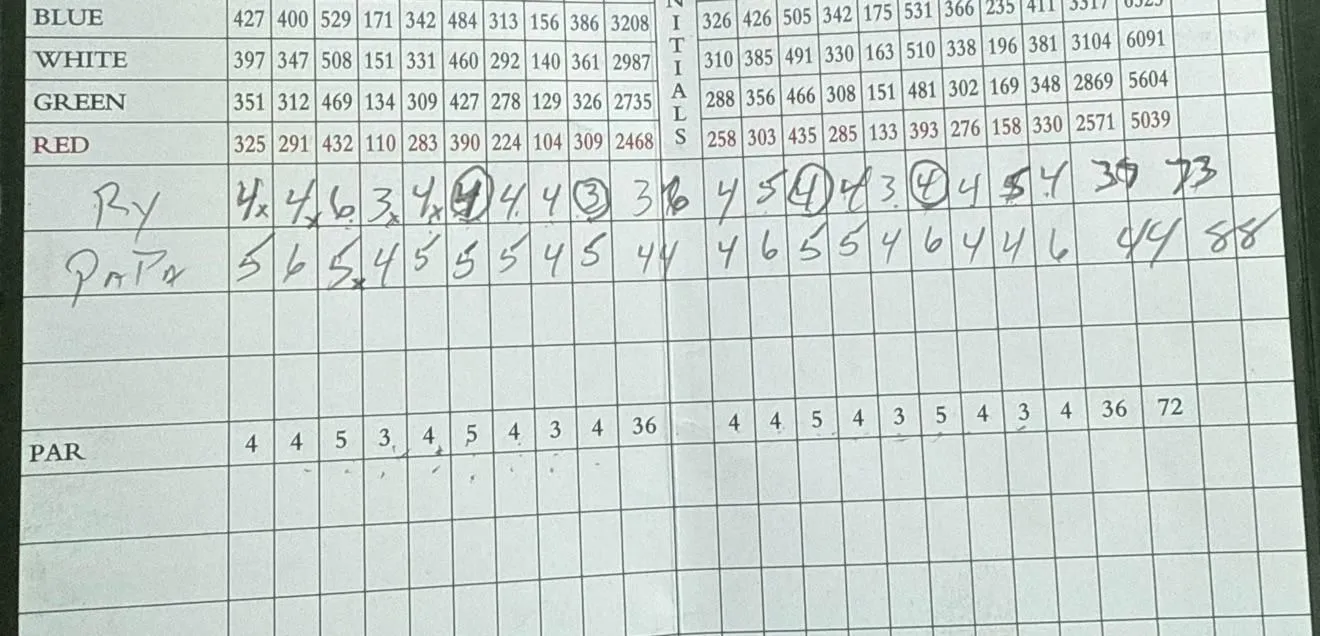 BLUE 427 400 529 171 342 484 313 156 386 3208 326 426 505 342 175 531 366 235 411 3317 6525
WHITE 397 347 508 151 331 460 292 140 361 2987 310 385 491 330 163 510 338 196 381 3104 6091
GREEN 351 312 469 134 309 427 278 129 326 2735 288 356 466 308 151 481 302 169 348 2869 5604
RED 325 291 432 110 283 390 224 104 309 2468 258 303 435 285 133 393 276 158 330 2571 5039
NITIALS
Ry 4x 4x 6 3x 4x 4 4 4 3 36 4 5 4 4 3 4 4 5 4 37 73
PAPA 5 6 5x 4 5 5 5 4 5 44 4 6 5 5 4 6 4 4 6 44 88
PAR 4 4 5 3 4 5 4 3 4 36 4 4 5 4 3 5 4 3 4 36 72